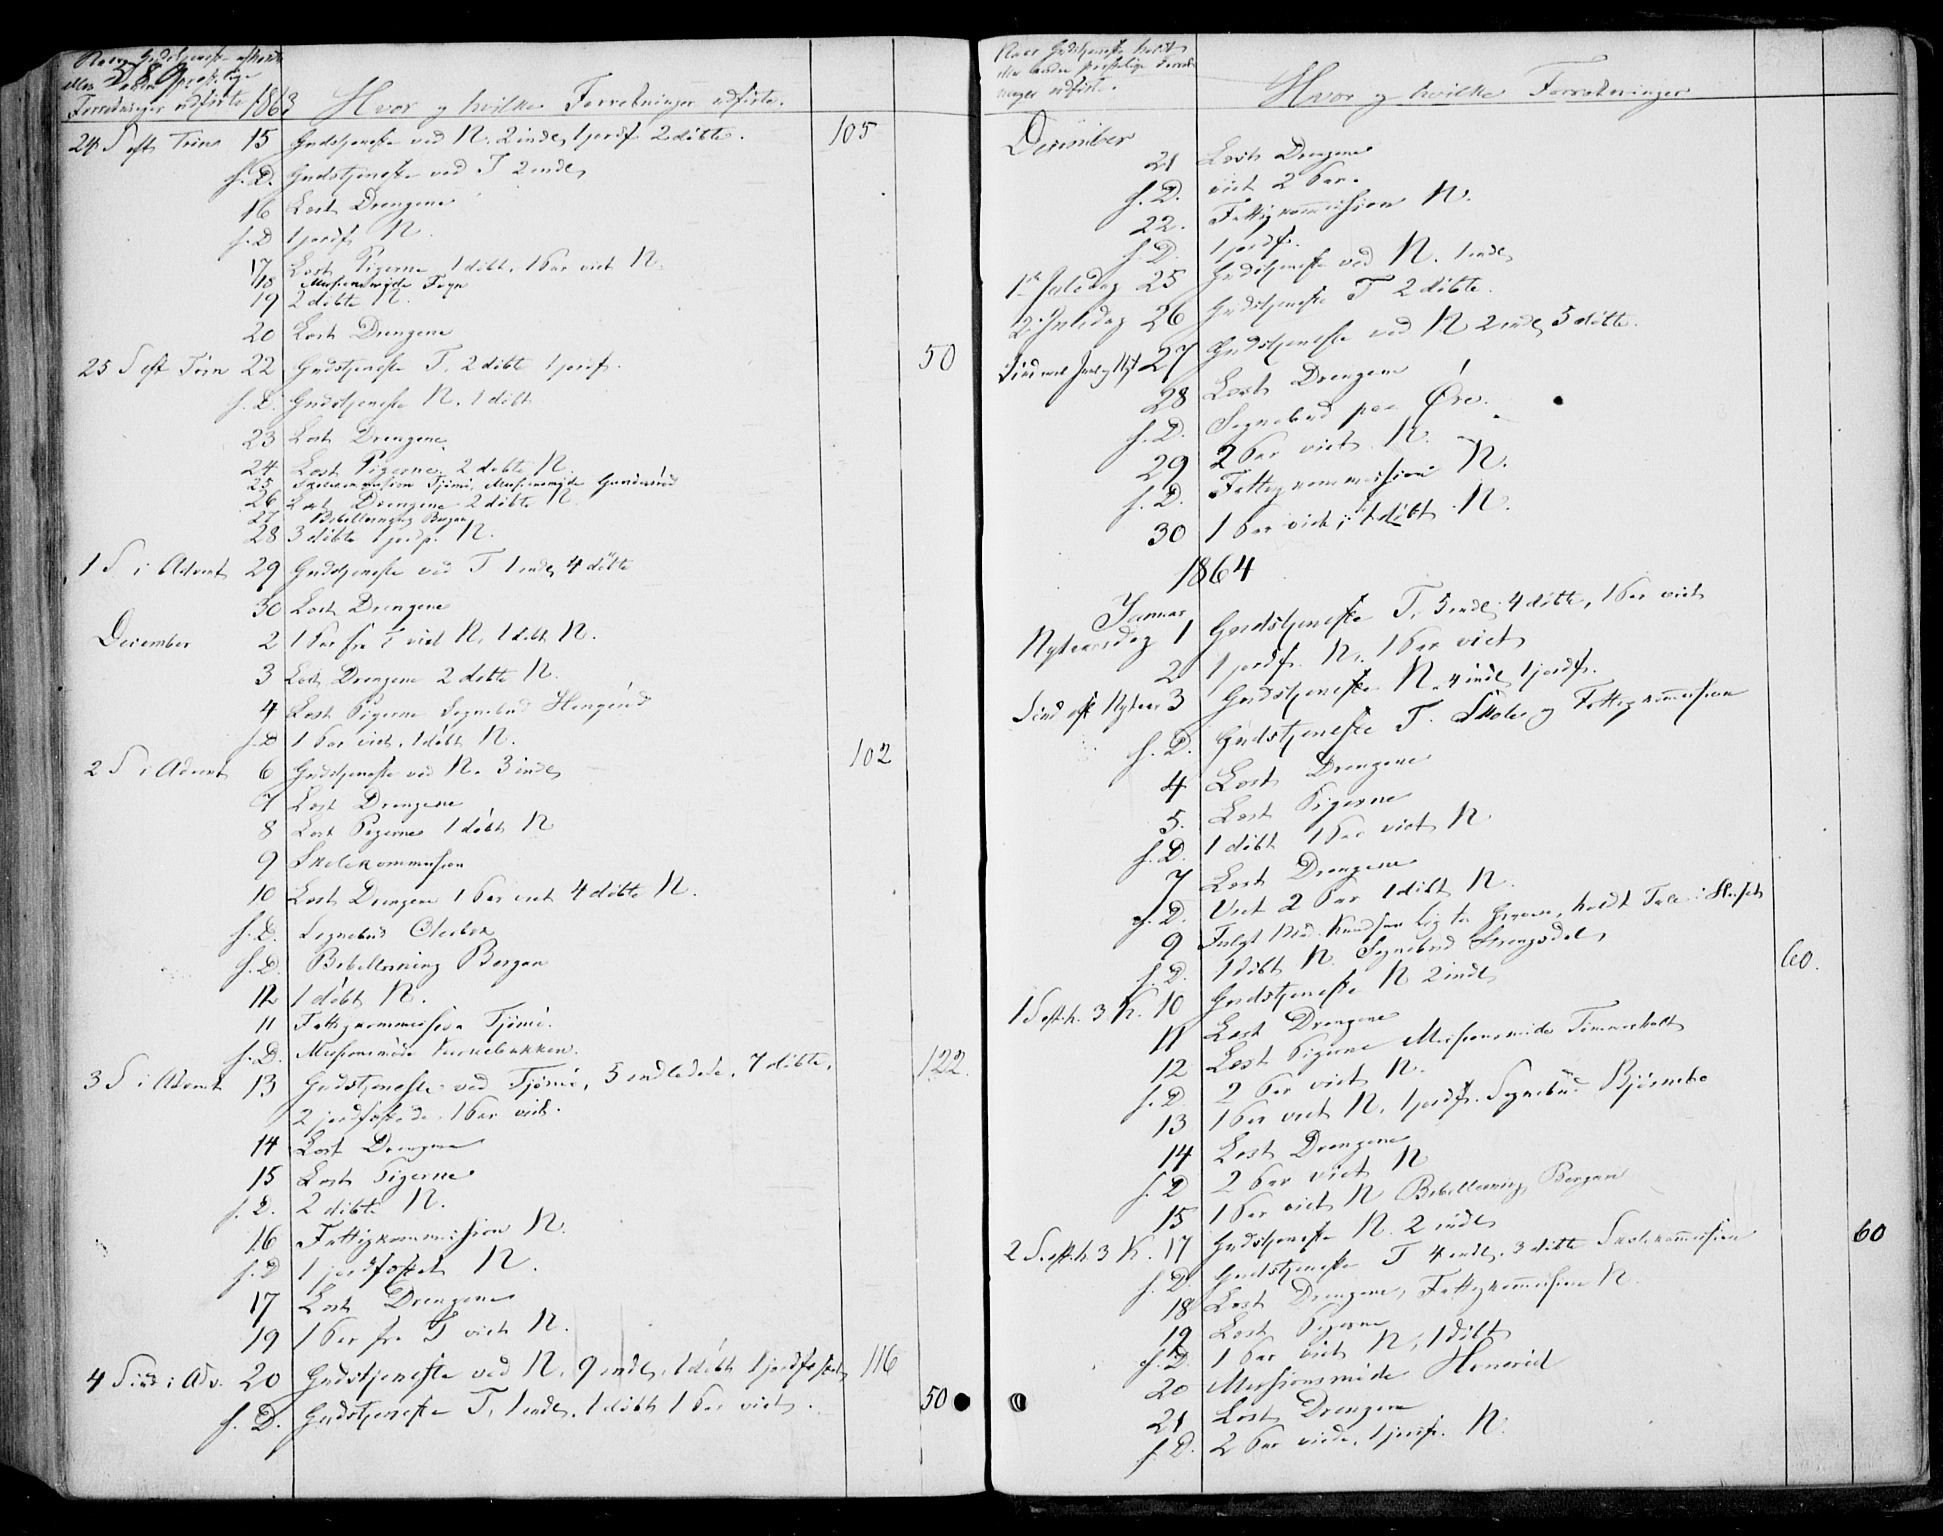 Naar Gudstjeneste afholdt
eller andre præstelige
589
Forretninger udførte 1863 Hvor og hvilke Forretninger udførte.
24 S eft Trin 15 Gudstjeneste ved N. 2 indl, 1 jordf. 2 døbte. 105
s. D. Gudstjeneste ved T 2 indl,
16 Læst Drengene
s. D 1 jordf. N.
17 Læst Pigerne, 1 døbt, 1 Par viet N.
18 Missionsmøde
19 2 døbte N.
20 Læst Drengene
25 S eft Trin 22 Gudstjeneste T. 2 døbte 1 jordf. 50
s. D. Gudstjeneste N. 1 døbt
23 Læst Drengene
24 Læst Pigerne, 2 døbte N.
25 Skolekommission Tjømø, Missionsmøde
26 Læst Drengene 2 døbte N.
27 Bibellæsning Bergan
28 3 døbte 1 jordf. N.
1 S i Advent 29 Gudstjeneste ved T 1 indl, 4 døbte
30 Læst Drengene
December 2 1 Par fra T viet N, 1 døbt N.
3 Læst Drengene 2 døbte N.
4 Læst Pigerne Sognebud
s. D 1 Par viet, 1 døbt N.
2 S i Advent 6 Gudstjeneste ved N. 3 indl, 102
7 Læst Drengene
8 Læst Pigerne 1 døbt N
9 Skolekommission
10 Læst Drengene 1 Par viet 4 døbte N.
s. D. Sognebud
s. D. Bibellæsning Bergan
12 1 døbt N.
11 Fattigkommission Tjømø.
s. D. Missionsmøde
3 S i Advent 13 Gudstjeneste ved Tjømø, 5 indledede, 7 døbte, 122.
2 jordfæstede, 1 Par viet.
14 Læst Drengene
15 Læst Pigerne
s. D. 2 døbte N.
16 Fattigkommission N.
s. D 1 jordfæstet N.
17 Læst Drengene
19 1 Par fra T viet N.
4 Sønd i Adv. 20 Gudstjeneste ved N. 9 indl, 1 døbt 1 jordfæstet, 116
s. D. Gudstjeneste T, 1 indl, 1 døbt 1 Par viet. 50
Naar Gudstjeneste holdt
eller andre præstelige Forret-
ninger udførte. Hvor og hvilke Forretninger
December
21 Læst Drengene
s. D. viet 2 Par.
22. Fattigkommission N.
s. D. 1 jordf.
1ste Juledag 25 Gudstjeneste ved N. 1 indl,
2. Juledag 26 Gudstjeneste T 2 døbte.
27 Gudstjeneste ved N 2 indl, 5 døbte.
28 Læst Drengene
s. D. Sognebud paa Øre.
29 2 Par viet N.
s. D. Fattigkommission N.
30 1 Par viet, 1 døbt N.
1864
Januar
Nytaarsdag 1 Gudstjeneste T, 5 indl, 4 døbte, 1 Par viet
2 1 jordf. N, 1 Par viet
Sønd eft Nytaar 3 Gudstjeneste N. 4 indl, 1 jordf.
s. D. Gudstjeneste T. Skole og Fattigkommission
4 Læst Drengene
5. Læst Pigerne
s. D. 1 døbt 1 Par viet N.
7 Læst Drengene
s. D. Viet 2 Par 1 døbt N.
9 Fulgt Md. Knudsens Lig til Graven, holdt Tale i Huset
s. D. 1 døbt N. Sognebud
1 S eft h. 3 K. 10 Gudstjeneste N 2 indl, 60.
11 Læst Drengene
12 Læst Pigerne Missionsmøde Tømmerholt
s. D 2 Par viet N.
13 1 Par viet N, 1 jordf. Sognebud Bjørnebo
14 Læst Drengene
s. D 2 Par viet N
15 1 Par viet N Bibellæsning Bergan
2 S. eft h. 3 K. 17 Gudstjeneste N. 2 indl, 60
s. D Gudstjeneste T 4 indl, 3 døbte Skolekommission
18 Læst Drengene, Fattigkommission N
19 Læst Pigerne
s. D. 1 Par viet N, 1 døbt
20 Missionsmøde
21 Læst Drengene
s. D. 2 Par viede, 1 jordf. N.